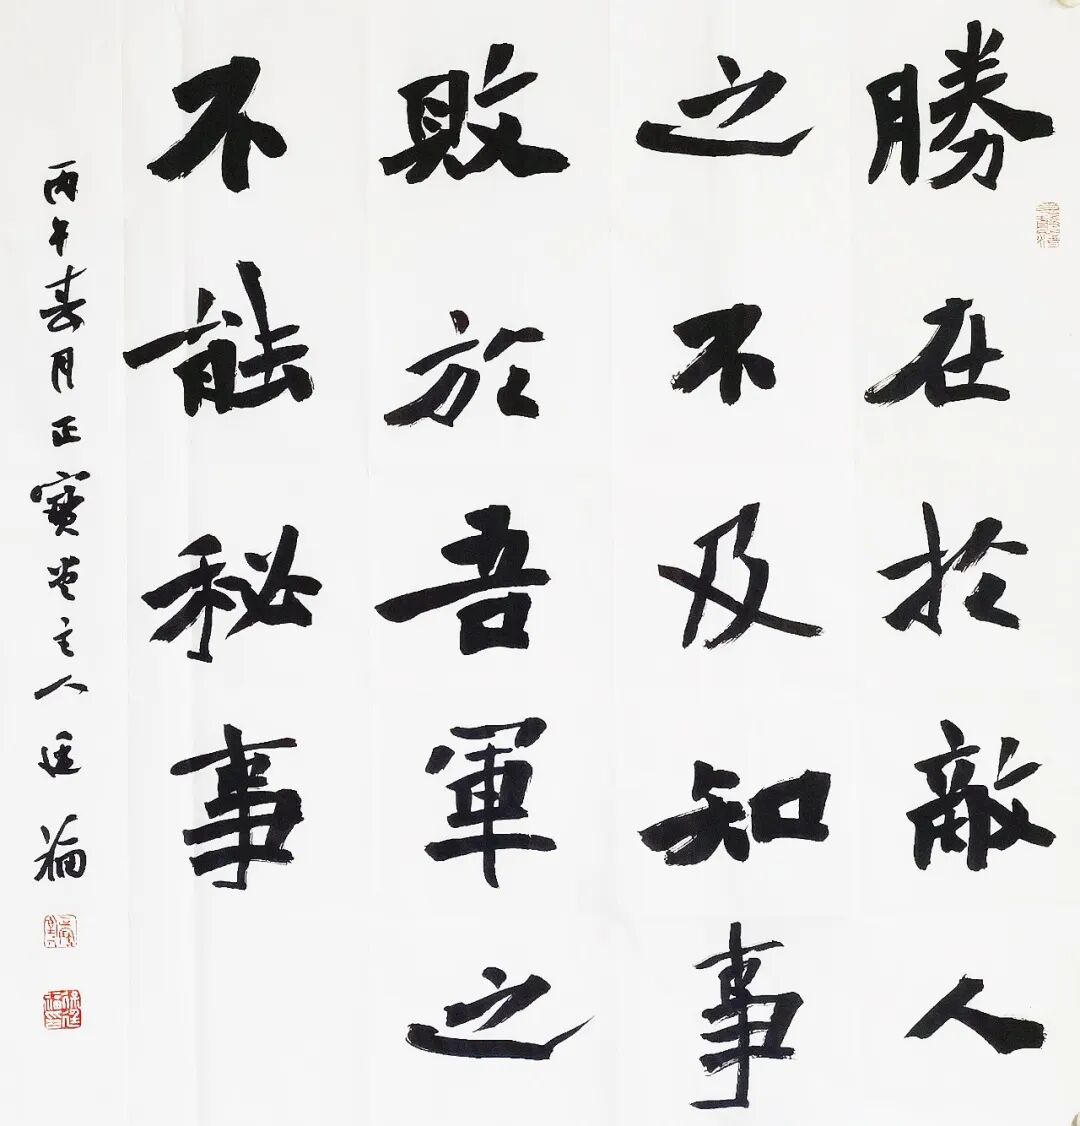 勝在於敵人
之不及知事
敗於吾軍之
不能秘事
丙午春月正寶堂主人廷福